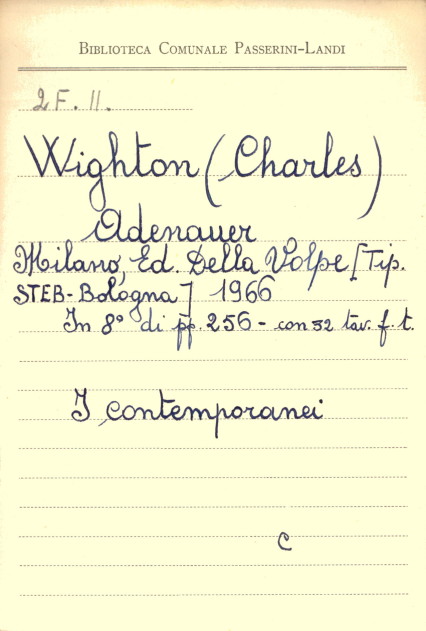 Biblioteca Comunale Passerini-Landi
2 F. 11.
Wighton (Charles)
Adenauer
Milano, Ed. Della Volpe [Tip.
STEB-Bologna] 1966
In 8° di pp. 256 - con 32 tav. f. t.
I contemporanei
C